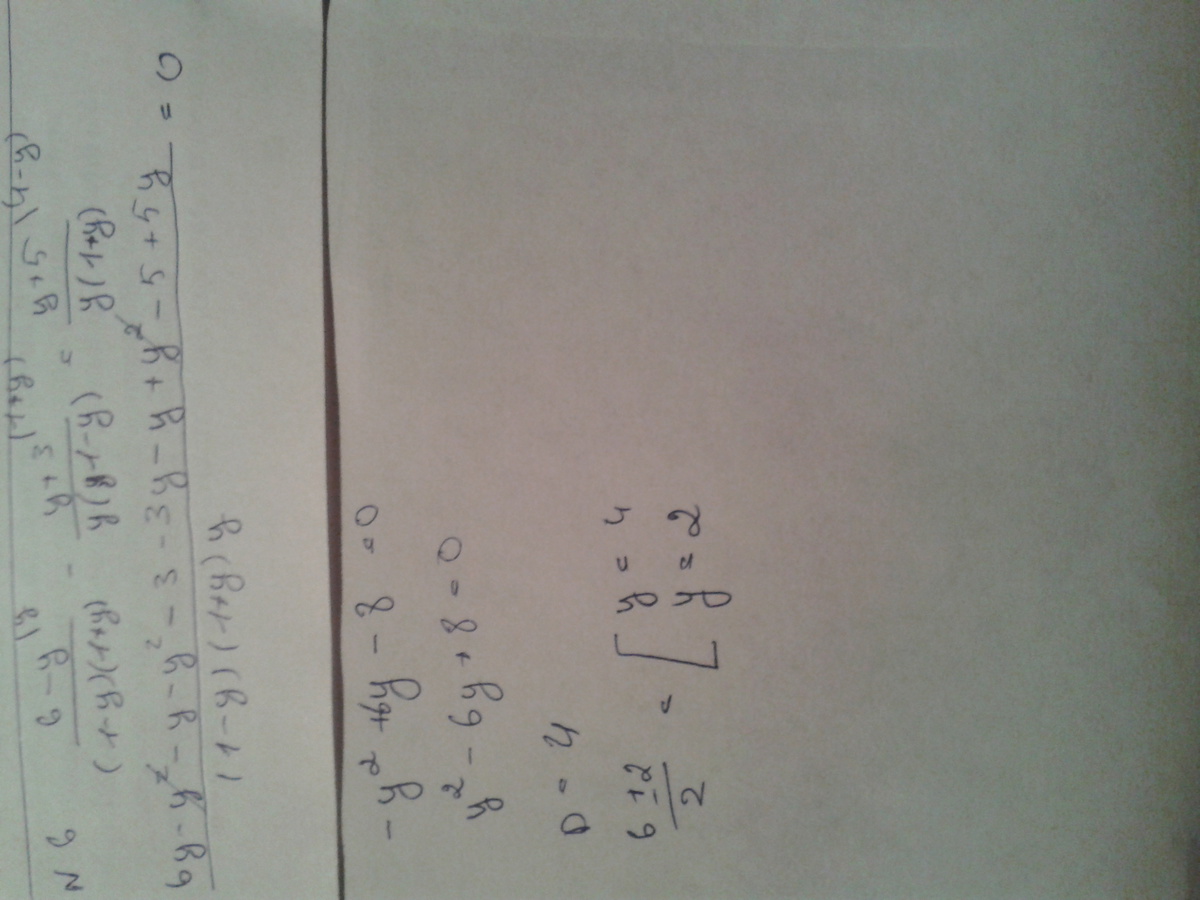 N 6
\frac{6-y}{(1-y)(1+y)}^{(y} - \frac{y+3}{y(1-y)}^{(1+y)} = \frac{y+5}{y(1+y)}^{(1-y)}
\frac{6y-y^2-y-y^2-3-3y-y+y^2-5+5y}{(1-y)(1+y)y} = 0
-y^2+6y-8=0
y^2-6y+8=0
D=4
\frac{6±2}{2} = [ y=4
y=2